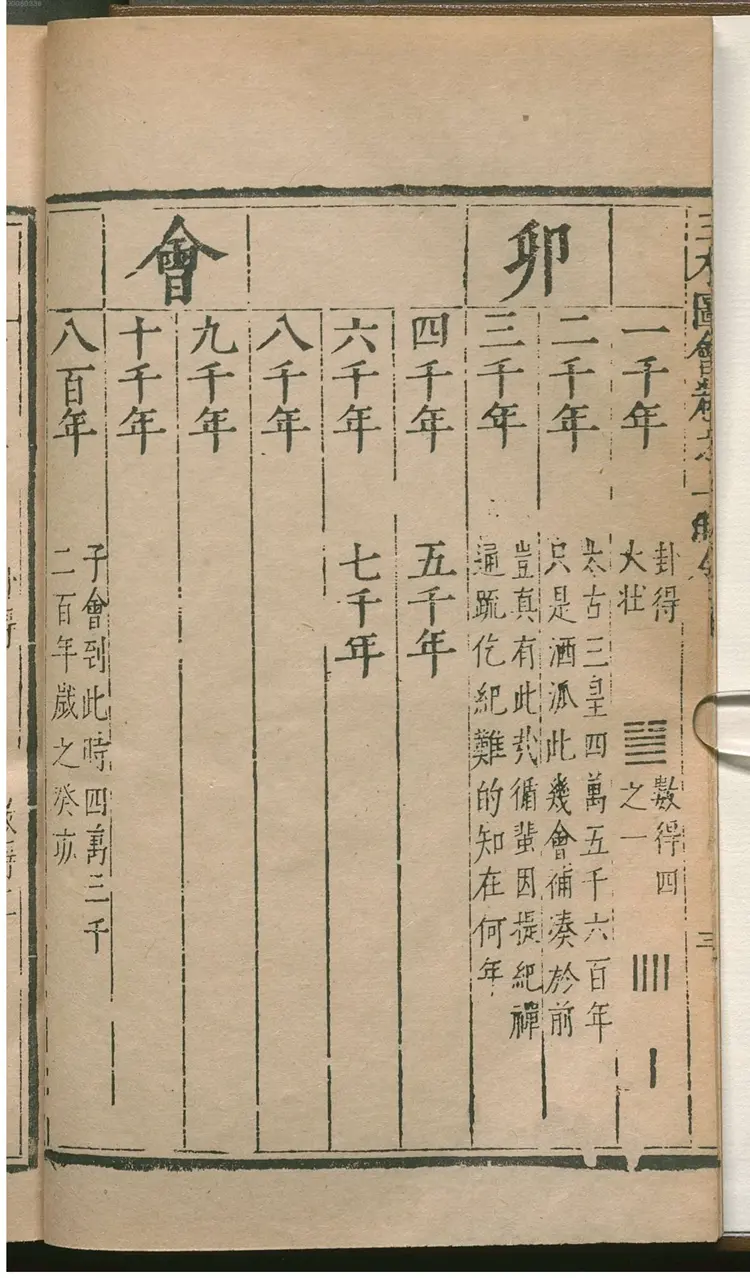 卯會
一千年
卦得
大壯
數得四
之一
二千年
太古三皇四萬五千六百年
只是酒派此幾會補凑於前
三千年
豈真有此哉循蜚因提紀禪
通疏仡紀難的知在何年
四千年
五千年
六千年
七千年
八千年
九千年
十千年
八百年
子會到此時四萬三千
二百年歲之癸亥